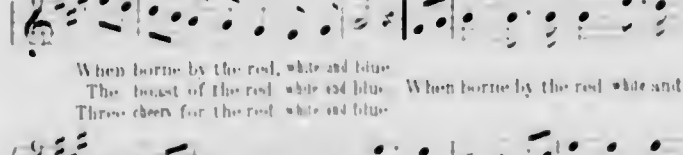 When borne by the red, white and blue
The boast of the red white and blue When borne by the red white and
Three cheers for the red white and blue